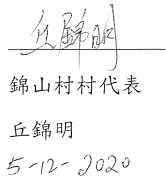 丘錦明
錦山村村代表
丘錦明
5-12-2020